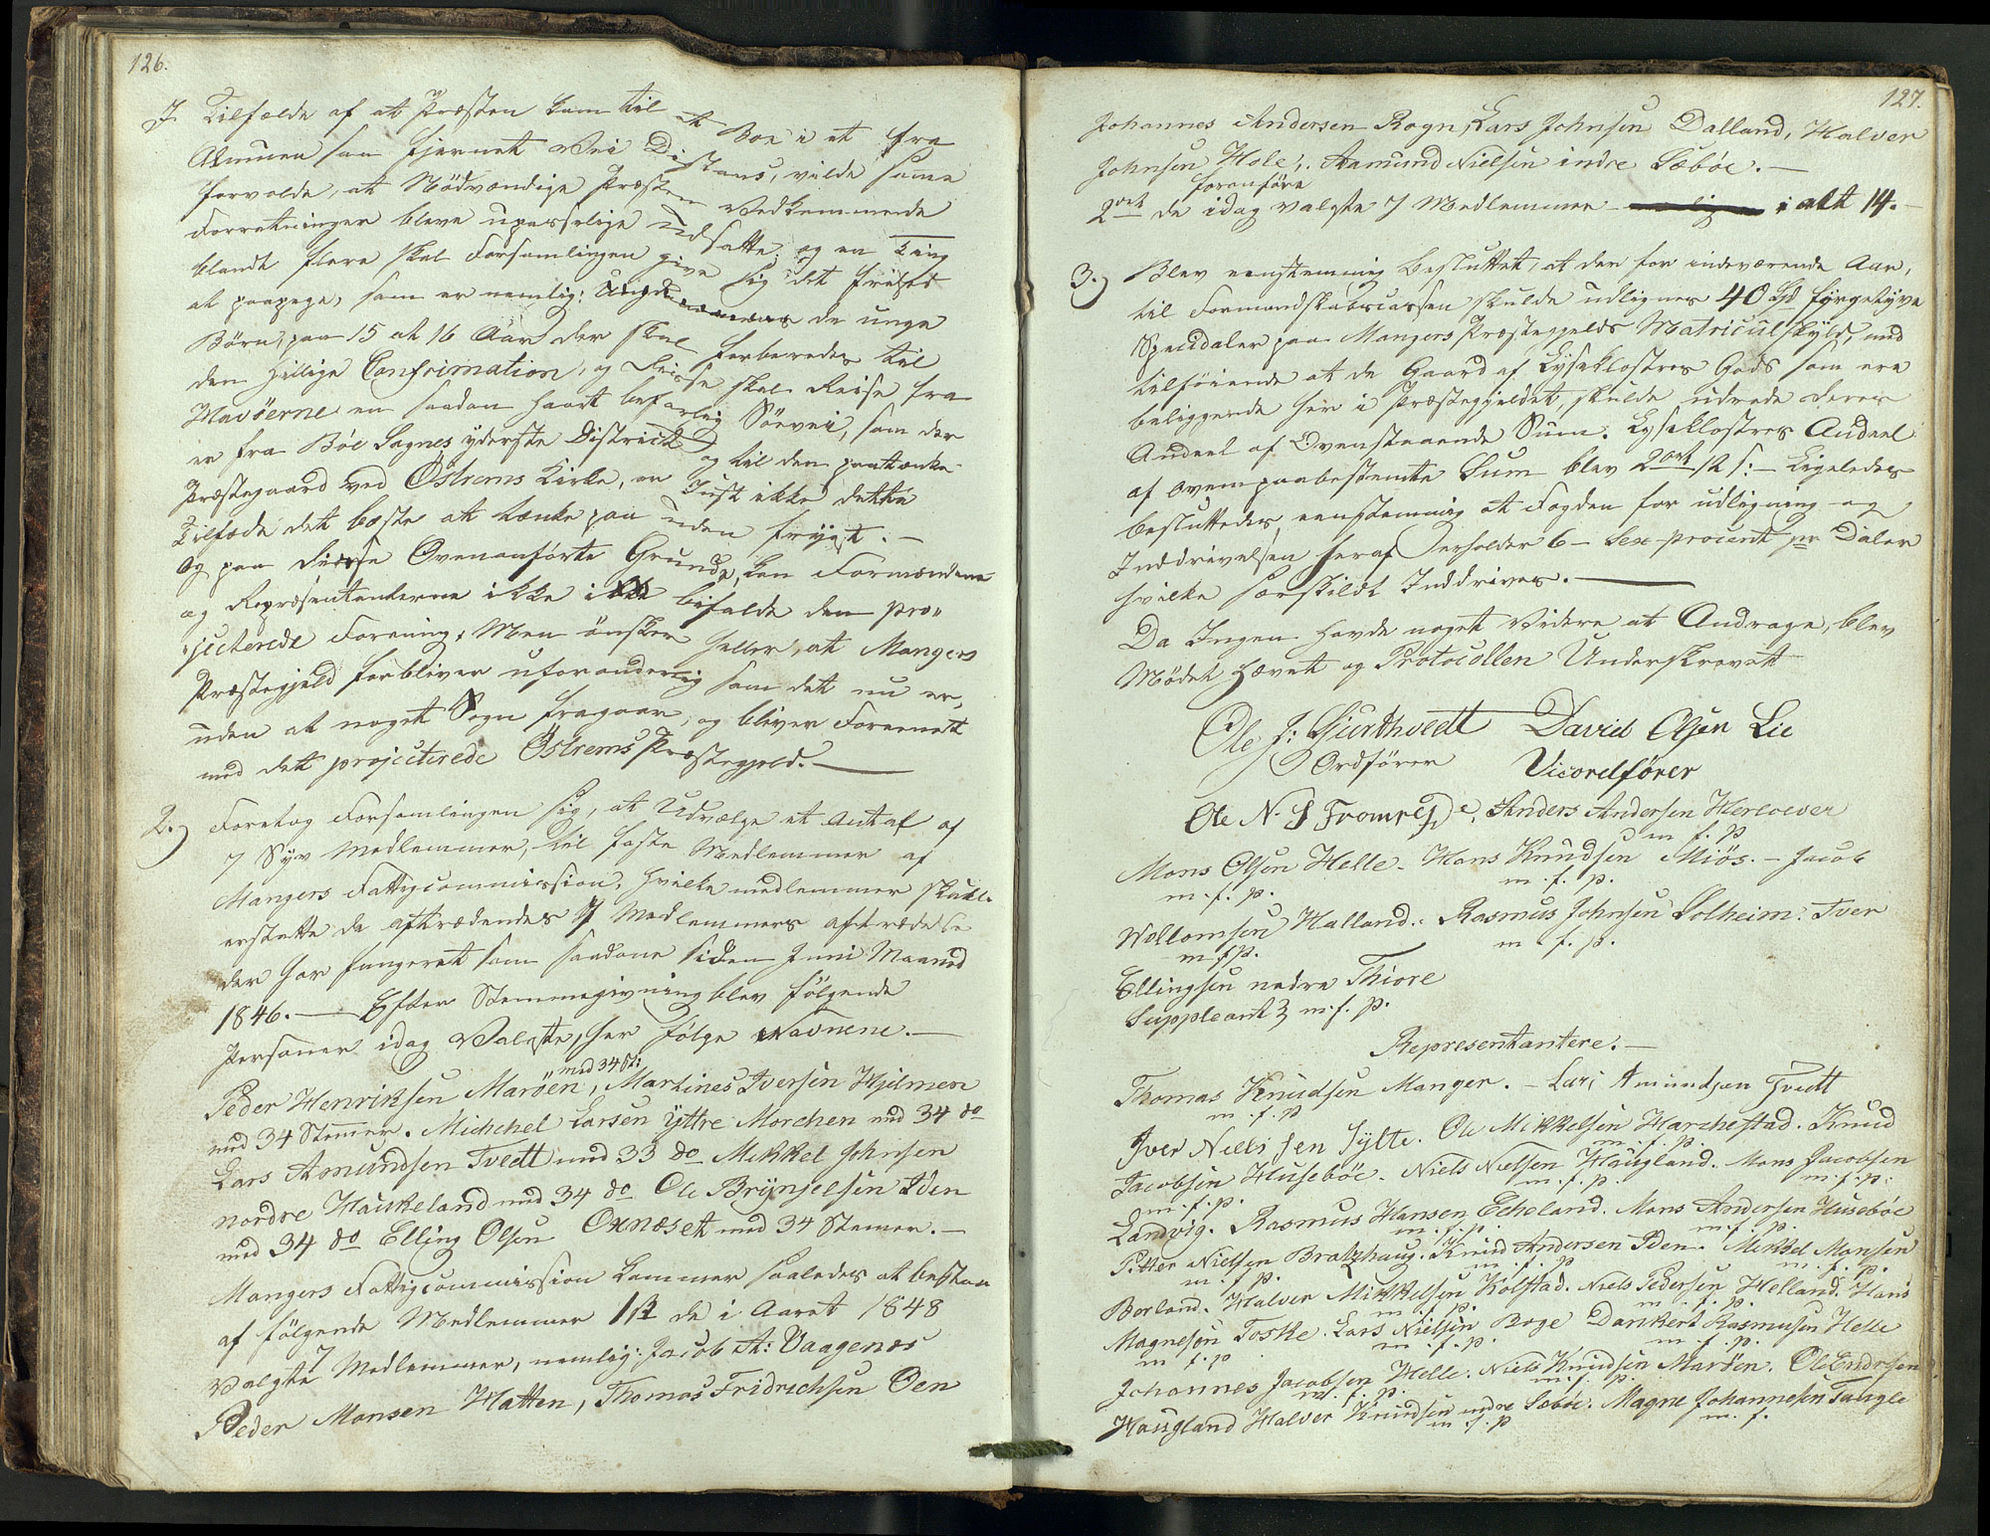 126.
I Tilfælde af at Præsten kom til at Boe i et fra
Almuen saa fjernet Vei Distans, vilde same
forvolde, at Nödvændige Præsten Vedkommende
Forretninger bleve upasselige Udsatte; og en Ting
blandt flere skal Forsamlingen give sig det frihed
at paapege, som er nemlig: de unge
Börn, paa 15 at 16 Aar der skal forberedes til
den Hellige Confrimation, og Disse skal Reise fra
Mavöerne en saadan haart befarlig Söevei, som der
er fra Böe Sognes yderste District og til den paatænkte
Præstegaard ved Östrems Kirke, er Just ikke dette
Tilfæde det bæste at tænke paa uden frygt. —
Og paa Disse Ovenanförte Grunde, kan Formændene
og Repræsentanterne ikke bifalde den pro"
"jecterede Forening; Men önsker heller, at Mangers
Præstegjeld forbliver uforanderlig som det nu er,
uden at noget Sogn fragaar, og bliver Foreenet
med dett projecterede Östrems Præstegjeld. —
2.) Foretog Forsamlingen sig, at Udvælge et Antal af
7 Syv Medlemmer, til faste Medlemmer af
Mangers Fattigcommission, hvilke medlemmer skulle
erstatte de aftrædendes 7 Medlemmers aftrædelse
der har fungeret som saadane siden Juni Maaned
1846. — Efter Stemmegivning blev fölgende
Personer idag Valgte, her fölge Navnene. —
med 34 St:
Peder Henriksen Maröen, Martines Iversen Hjelmen
med 34 Stemer. Michchel Larsen Yttre Morchen med 34 do
Lars Amundsen Tvedt med 33 do Mikkel Johnsen
nordre Hauskeland med 34 do Ole Brynjelsen Iden
med 34 do Elling Olsen Oxnæset med 34 Stemer. —
Mangers Fattigcommission kommer saaledes at bestaa
af fölgende Medlemmer 1st de i Aaret 1848
Valgte 7 Medlemmer, nemlig: Jacob A: Vaagenes
Peder Monsen Hatten, Thomas Fridrichsen Öen
127.
Johannes Andersen Rogn, Lars Johnsen Dalland, Halver
Johnsen Hole, Aamund Nielsen indre Sæböe. —
foranföre
2det de idag valgte 7 Medlemmer i alt 14. —
3.) Blev eenstemmig besluttet, at der for indeværende Aar,
til Formandskabscassen skulde udlignes 40 Spd fyrgetyve
Speciedaler paa Mangers Præstegjelds Matriculskyld, med
tilföiende at de Gaard af Lyseklostres Gods som ere
beliggende her i Præstegjeldet, skulde udrede deres
Andeel af Ovenstaaende Sum. Lyseklostres Andeel
af ovenpaabestemte Sum blev 2 ort 12 s: — Ligeledes
besluttedes eenstemmig at Fogden for udligning og
Inddrivelsen heraf erholder 6 — Sex procent pr Daler
hvilke særskildt Inddrives. —
Da Ingen havde noget Videre at Andrage, blev
Mödet Hævet og Protocollen Underskrevet
Ole J: Gjurthvedt David Olsen Lie
Ordförer Vicordförer
Ole N. S Fromre, Anders Andersen Herloever
m. f. p
Mons Olsen Helle - Hans Knudsen Miös. — Jacob
m. f. p. m. f. p.
Wollomsen Halland. Rasmus Johnsen Solheim. Iver
m f p. m. f. p.
Ellingsen nedre Thiore
Suppleant m. f. p.
Representantere. —
Thomas Knudsen Manger. — Lars Amundsen Tvedt
m. f. p
Iver Nielsen Sylte. Ole Mikkelsen Harchestad. Knud
m. f. p.
Jacobsen Huseböe. Niels Nielsen Haugland. Mons Jacobsen
m. f. p. m. f. p. m. f. p.
Landvig. Rasmus Hansen Echeland. Mons Andersen Huseböe
m. f. p. m. f. p.
Petter Nielsen Bratzhaug. Knud Andersen Iden. Mikkel Monsen
m. f. p. m. f. p m. f. p.
Borland. Halver Mikkelsen Kolstad. Niels Pedersen Helland. Hans
m. f. p. m. f. p.
Magnesen Toske. Lars Nielsen Boge Dankert Rasmusen Helle
m. f. p m. f. p m. f. p.
Johannes Jacobsen Helle. Niels Knudsen Maröen. Ole Endresen
m. f. p. m. f. p.
Haugland Halver Knudsen indre Seböe. Magne Johannesen Taugle
m. f. p m. f.